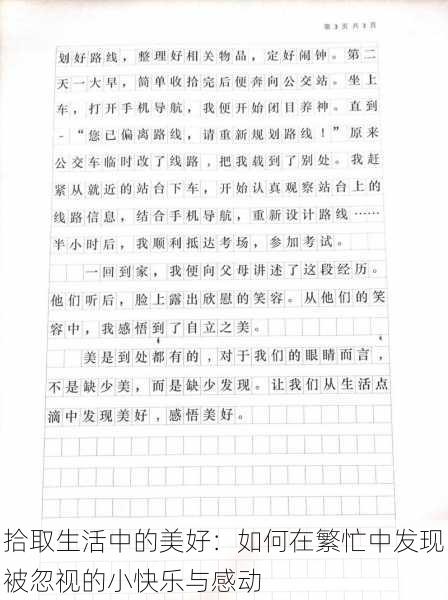 第 3 页 共 3 页
划好路线，整理好相关物品，定好闹钟。第二
天一大早，简单收拾完后便奔向公交站。坐上
车，打开手机导航，我便开始闭目养神。直到
-“您已偏离路线，请重新规划路线！”原来
公交车临时改了线路，把我载到了别处。我赶
紧从就近的站台下车，开始认真观察站台上的
线路信息，结合手机导航，重新设计路线……
半小时后，我顺利抵达考场，参加考试。
一回到家，我便向父母讲述了这段经历。
他们听后，脸上露出欣慰的笑容。从他们的笑
容中，我感悟到了自立之美。
美是到处都有的，对于我们的眼睛而言，
不是缺少美，而是缺少发现。让我们从生活点
滴中发现美好，感悟美好。
拾取生活中的美好：如何在繁忙中发现
被忽视的小快乐与感动